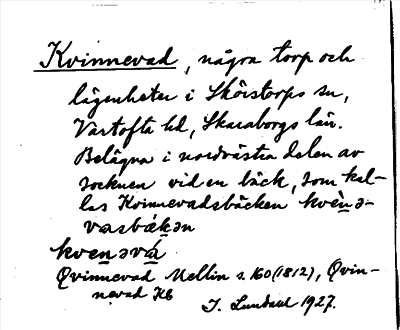 Kvinnevad, några torp och
lägenheter i Skörstorps sn,
Vartofta hd, Skaraborgs län.
Belägna i nordvästra delen av
socknen vid en bäck, som kal-
las Kvinnevadsbäcken kvènə-
vasbäkən
kvenəvá
Qvinnevad Mellin s. 160 (1812), Qvin-
nevad KB
I. Lundahl 1927.